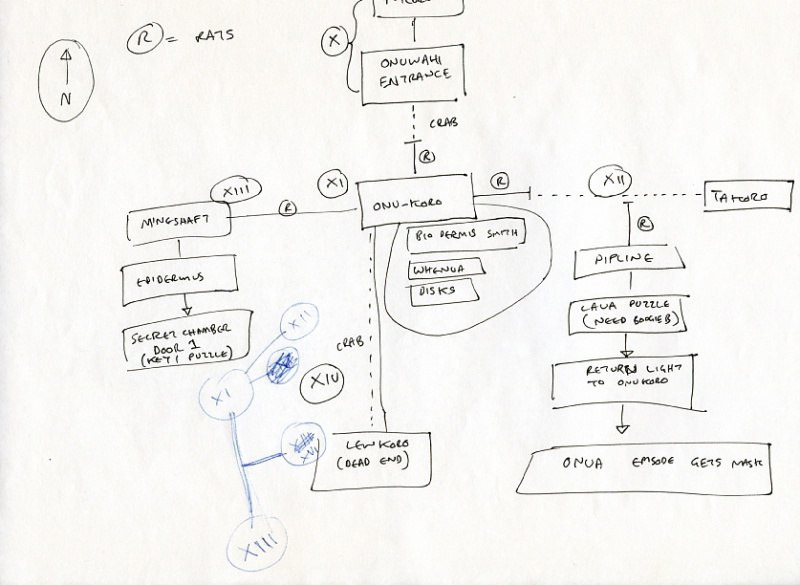 R = RATS
X
N
ONUWAHI
ENTRANCE
CRAB
R
XIII
XI
R
XII
MINESHAFT
R
ONU-KORO
TAKORO
BIO DERMIS SMITH
R
WHENUA
DISKS
PIPLINE
EPIDERMUS
LAVA PUZZLE
(NEED BOOGIEB)
SECRET CHAMBER
DOOR 1
(KEY 1 PUZZLE)
XII
CRAB
XIV
XI
RETURN LIGHT
TO ONUKORO
LEWKORO
(DEAD END)
XVI
ONUA EPISODE GETS MASK
XIII